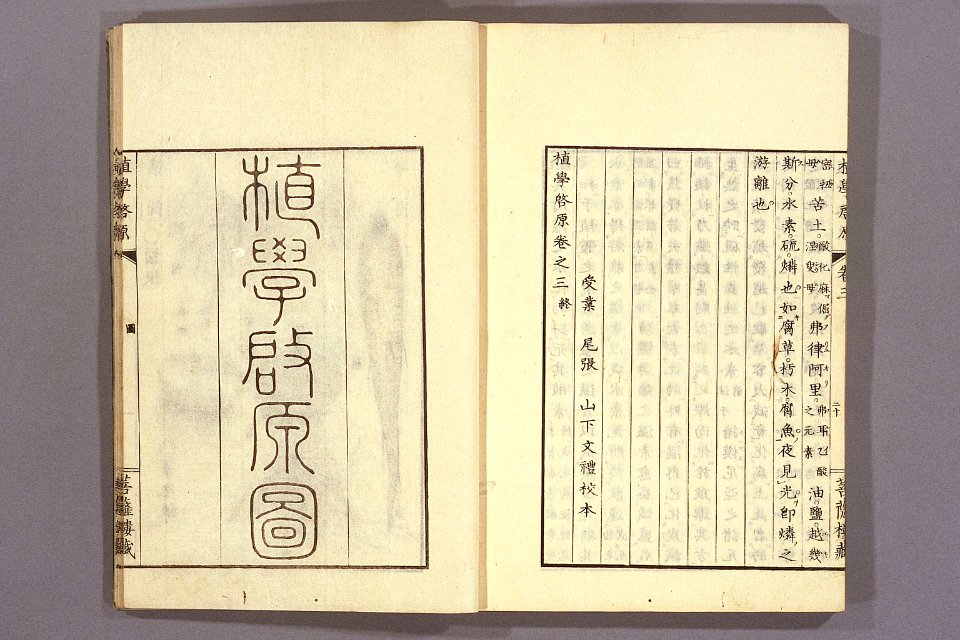 苦土。酸化麻倔。弗律阿里。弗耳乙酸之元素油。鹽。越幾
斯分。水素。硫。燐也。如腐草。朽木。腐魚。夜見光。卽燐之
游離也。
受業 尾張 山下文禮校本
植學啓原卷之三 終
植學啓原圖
植學啓原
圖
菩薩樓藏
卷三
二十
菩薩樓藏